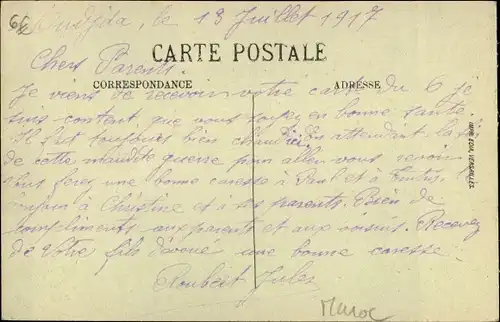 Oudjda, le 13 Juillet 1917
CARTE POSTALE
Chers Parents.
CORRESPONDANCE
ADRESSE
Je viens de recevoir votre carte du 6 je
suis content, que vous soyez en bonne santé
Il fait toujours bien chaud ici, En attendant la fin
de cette maudite guerre pour aller vous revoir
vous ferez une bonne caresse à Paul et à
à Christine et à ses parents. Bien de
compliments aux parents et aux voisins. Recevez
de votre fils dévoué une bonne caresse.
Roubert Jules
Maroc
IMP. EDIA, VERSAILLES.